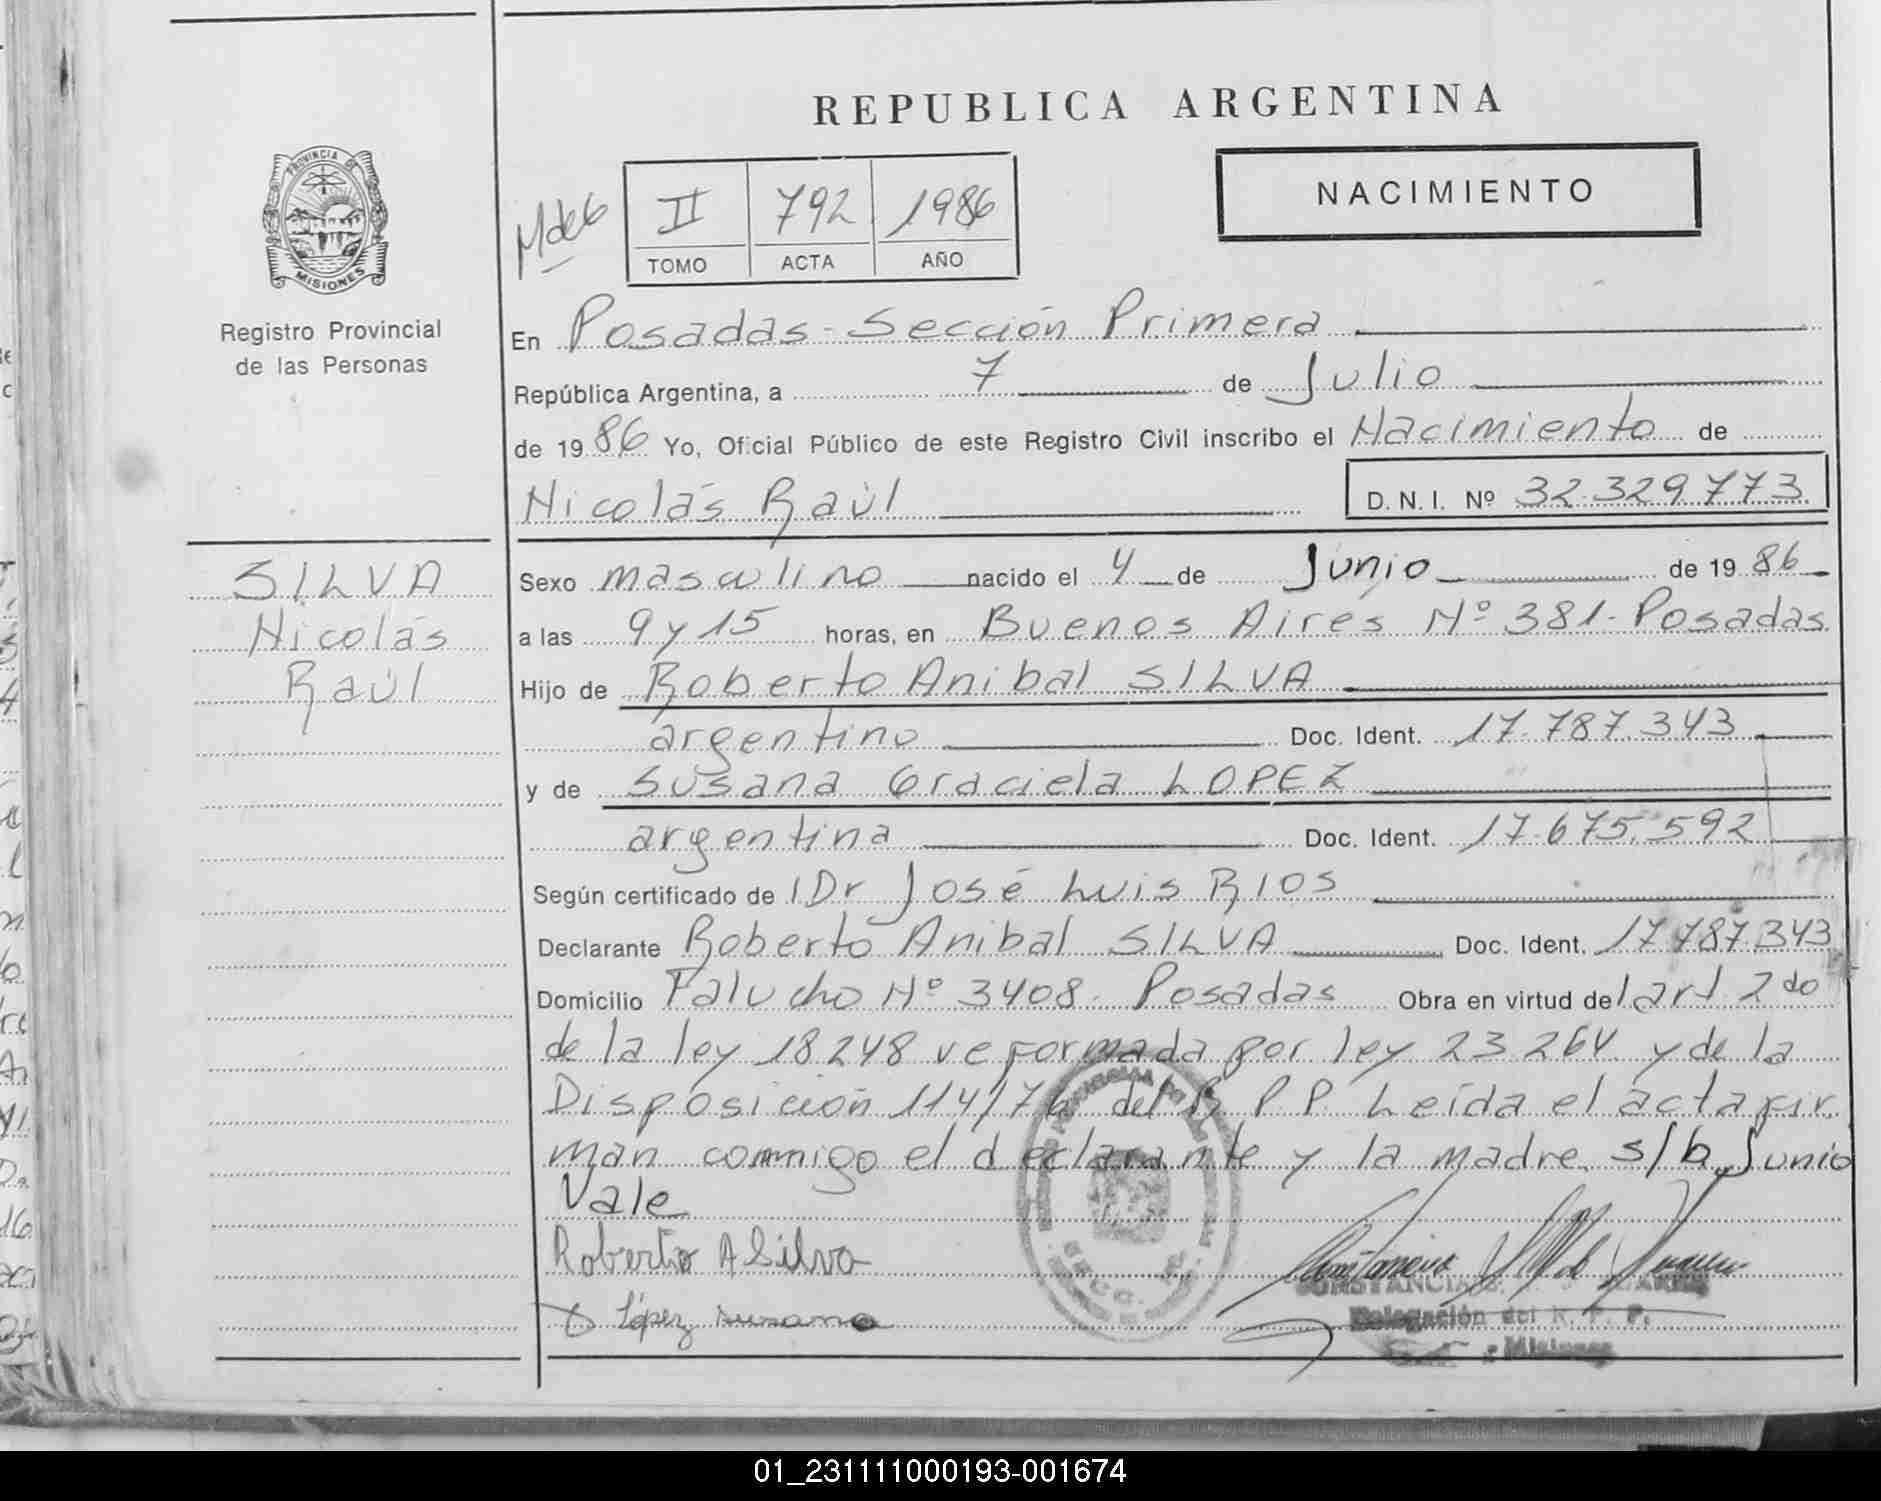 REPUBLICA ARGENTINA
PROVINCIA DE
MISIONES
Registro Provincial
de las Personas
II 792 1986
TOMO ACTA AÑO
NACIMIENTO
En Posadas - Sección Primera
República Argentina, a 7 de Julio
de 1986 Yo, Oficial Público de este Registro Civil inscribo el Nacimiento de
Nicolás Raúl D.N.I. Nº 32.329.773
SILVA
Nicolás
Raúl
Sexo masculino nacido el 4 de Junio de 1986
a las 9 y 15 horas, en Buenos Aires Nº 381- Posadas
Hijo de Roberto Anibal SILVA
argentino Doc. Ident. 17.787.343
y de Susana Graciela LOPEZ
argentina Doc. Ident. 17.675.592
Según certificado de Dr José Luis RIOS
Declarante Roberto Anibal SILVA Doc. Ident. 17.787.343
Domicilio Falucho Nº 3408. Posadas Obra en virtud del art. 2do
de la ley 18248 reformada por ley 23264 y de la
Disposición 114/76 del R. P. P. Leída el acta fir
man conmigo el declarante y la madre. s/b Junio
Vale
Roberto A Silva
López Susana
Delegación del R. P. P.
Misiones
01_231111000193-001674